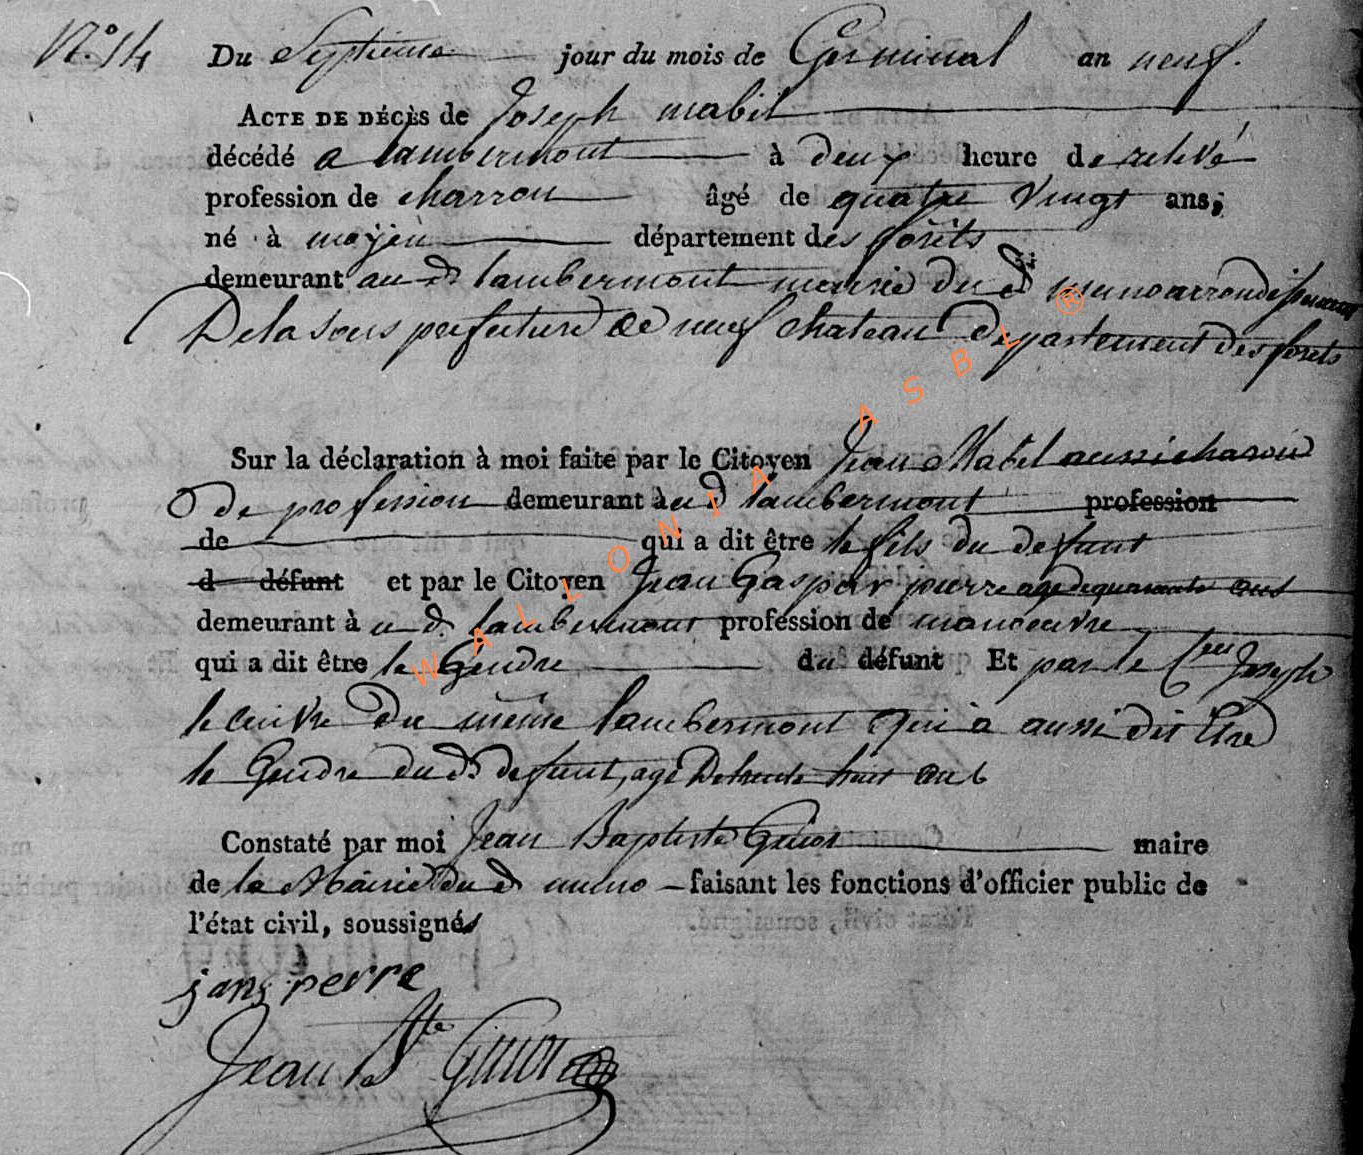 N.º 14 Du Septieme jour du mois de Germinal an neuf.
ACTE DE DÉCÈS de Joseph mabil
décédé a lambermont à deux heure de relevé
profession de charron âgé de quatre vingt ans;
né à moyen département des forêts
demeurant au d. lambermont mairie du d. muno arrondissement
De la sous prefecture de neuf chateau Departement des forêts
Sur la déclaration à moi faite par le Citoyen Jean Mabil aussi charon
de profession demeurant à u d. lambermont profession
de qui a dit être le fils du defunt
d défunt et par le Citoyen Jean Gaspar pierre agé de quarante ans
demeurant à u d. lambermont profession de manoeuvre
qui a dit être le Gendre du défunt Et par le Cen Joseph
du même lambermont qui a aussi dit Etre
le Gendre du d. defunt, agé De trente huit ans
Constaté par moi Jean Baptiste Guiot maire
de la Mairie du d. muno – faisant les fonctions d'officier public de
l'état civil, soussignés
jang perre
Jean Bte Guiot
WALLONIA ASBL ®